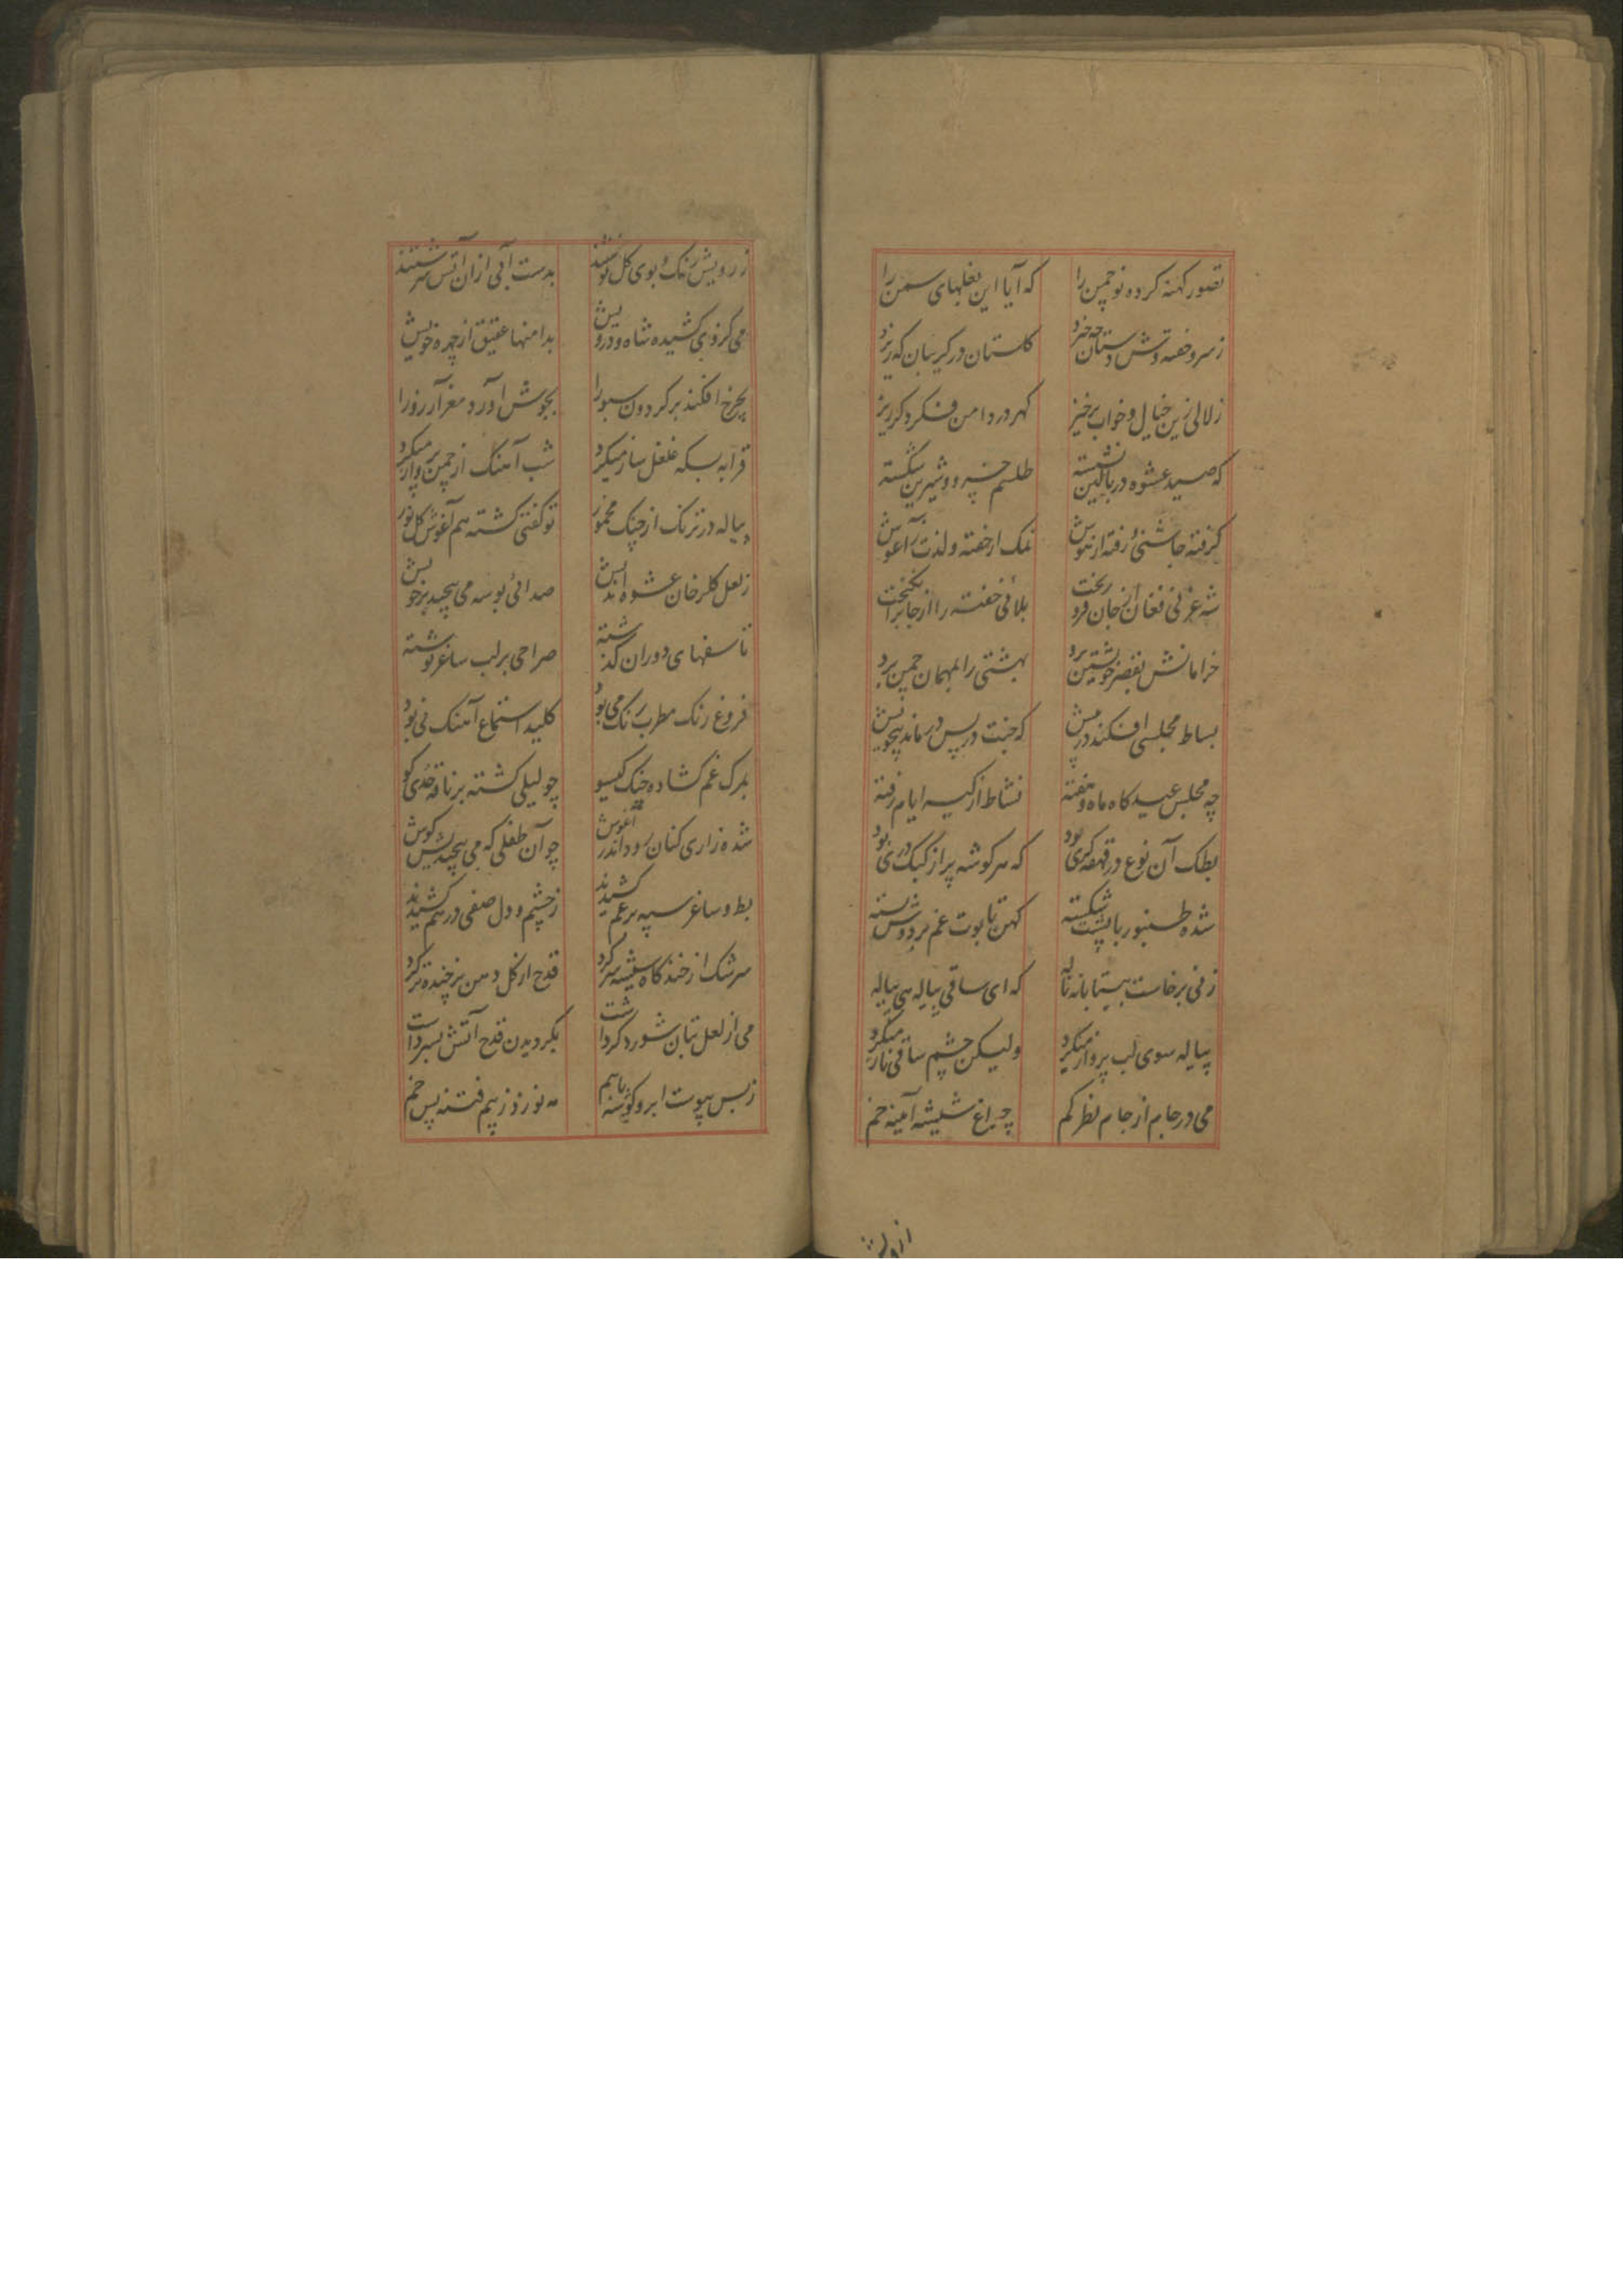 تصور کهنه کرده نو چمن را که آیا این بغلهای سمن را
ز سرو خفته وش دستان چه خیزد کلستان در کریبان که ریزد
زلالی زین خیال و خواب برخیز کهر در دامن فکر دکر ریز
که صید عشوه در بالین نشسته طلسم خسرو و شیرین شکسته
کرفته چاشنی و رفته از هوش نمک از خفته و لذت بر آغوش
شه غزنی فغان از جان فرو ریخت بلائی خفته را از جا برانکیخت
خرامانش بقصر خویشتن برد بهشتی را بمهمان چمن برد
بساط مجلسی افکند در پیش که جنت در پس در ماند بیخویش
چه مجلس عیدکاه ماه و هفته نشاط از کیسه ایام رفته
بطک آن نوع در قهقه کری بود که هر کوشه پر از کبک دری بود
شده طنبور با پشت شکسته کهن تابوت غم بر دوش بسته
ز نی برخاست بیتابانه ناله که ای ساقی پیاله هی پیاله
پیاله سوی لب پرواز میکرد ولیکن چشم ساقی ناز میکرد
می در جام از جام نظر کم چراغ شیشه آینه خم
ز رویش رنک و بوی کل نوشتند بدست آبی از ان آتش سرشتند
می کز وی کشیده شاه و درویش بدامنها عقیق از چهره خویش
بچرخ افکند بر کردون سبو را بجوش آورد مغز آرزو را
قرابه بسکه غلغل ساز میکرد شب آهنک از چمن پرواز میکرد
پیاله در ترنک از چنک مخمور تو کفتی کشته هم آغوش کافور
ز لعل کلرخان عشوه اندیش صدائی بوسه می پیچید بر خویش
تاسفهای دوران کذشته صراحی بر لب ساغر نوشته
فروغ رنک مطرب رنک می بود کلید استماع آهنک نی بود
بمرک غم کشاده چنک کیسو چو لیلی کشته بر ناقه حدی کو
شده زاری کنان رود اندر آغوش چو آن طفلی که می پیچیدیش کوش
بط و ساغر سپه بر غم کشیدند ز چشم و دل صفی در هم کشیدند
سرشک از خنده کاه شیشه سر کرد قدح از کل دهن پر خنده تر کرد
می از لعل بتان شور در کرداشت بکردیدن قدح آتش بسر داشت
ز بس پیوست ابرو کوشه با هم مه نو زد ز بیم فتنه پس خم